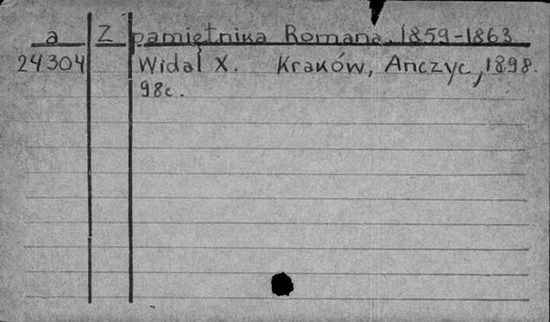 a Z pamiętnika Romana 1859-1863
24304 Widal X. Kraków, Anczyc, 1898.
98c.